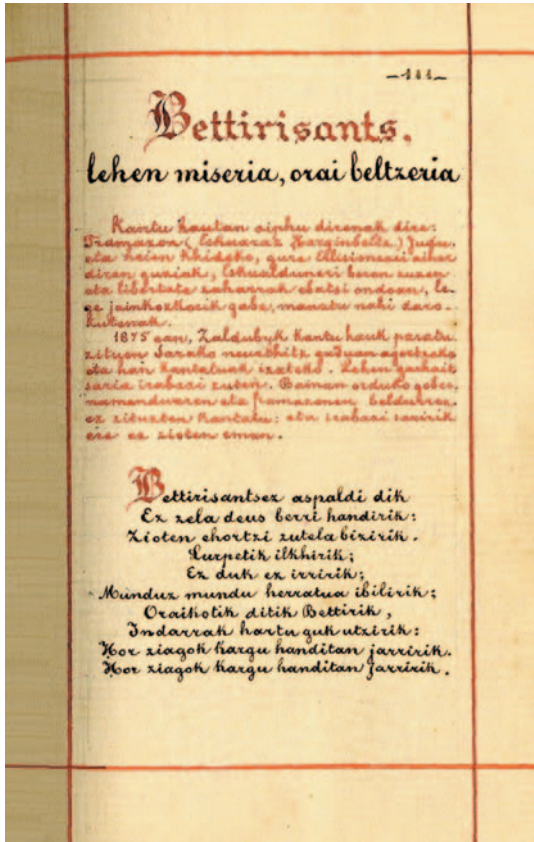 -111-
Bettirisants.
lehen miseria, orai beltzeria
Kantu hautan aiphu direnak dire:
Framazon (Eskuaraz Harginbeltz.) Judu,
eta heien khideko, gure Ellisimenei aiher
diren guziak, Eskualduneri beren zuzen
eta libertate zaharrak ebatsi ondoan, le-
ge jainkozkorik gabe, manatu nahi daro-
kutenak.
1875 ean, Zaldubyk kantu hauk paratu
zituen Sarako neurthitz guduan agertzeko
eta han kantatuak izateko. Lehen garhait
saria irabazi zuten. Bainan orduko gober-
namenduaren eta framazonen beldurrez,
ez zituzten kantatu: eta irabazi saririk
ere ez zioten eman.
Bettirisantsez aspaldi dik
Ez zela deus berri handirik:
Zioten ehortzi zutela bizirik.
Lurpetik ilkhirik;
Ez duk ez irririk;
Munduz mundu herratua ibilirik;
Oraikotik ditik Bettirik,
Indarrak hartu guk utzirik:
Hor ziagok kargu handitan jarririk.
Hor ziagok kargu handitan jarririk.